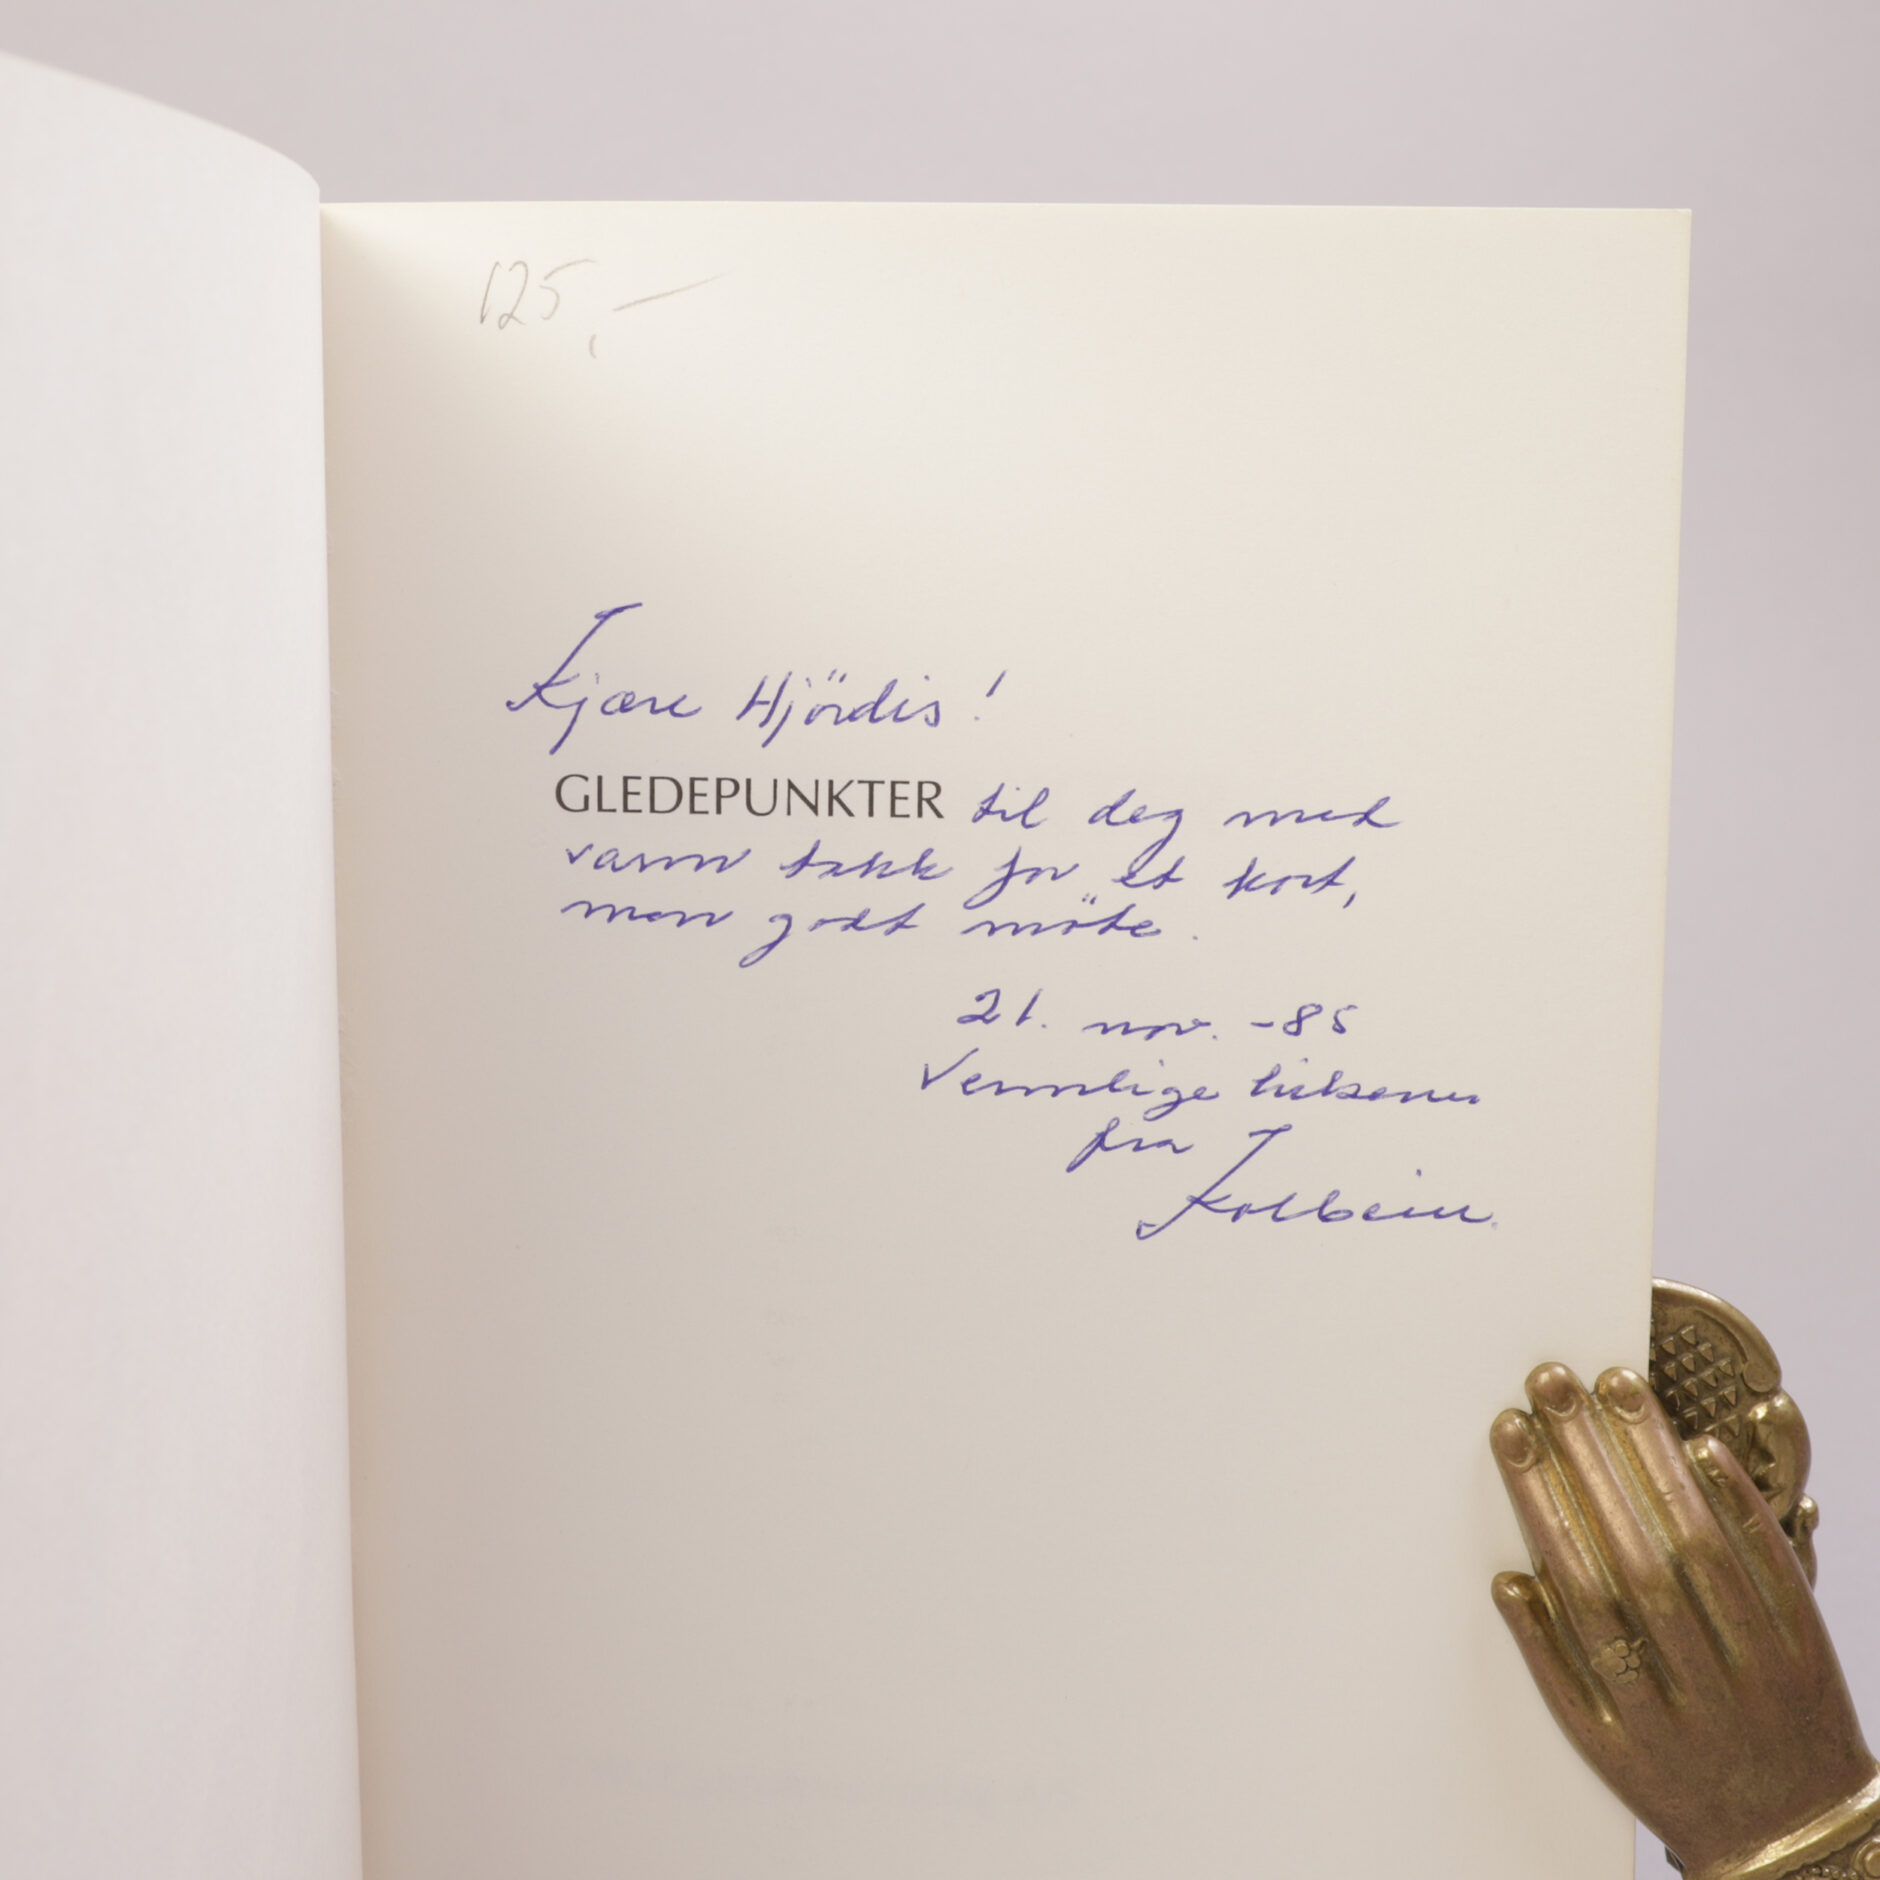 125,-
Kjære Hjördis!
GLEDEPUNKTER til deg med
varm takk for et kort,
men godt möte.
21. nov. -85
Vennlige hilsener
fra
Kolbein.